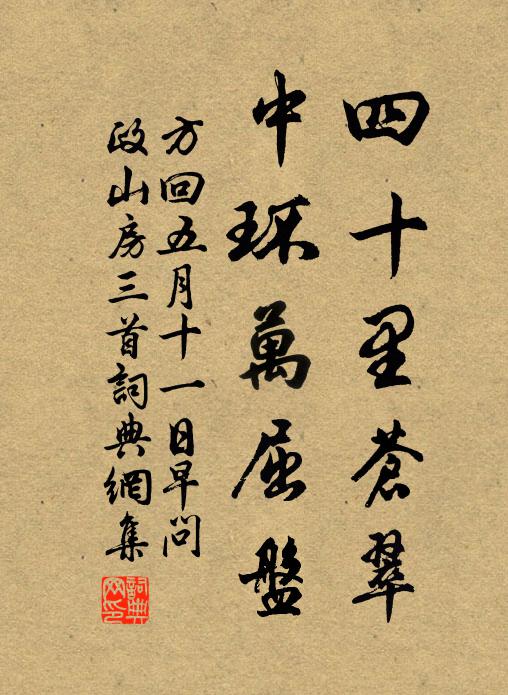 四十里蒼翠
中环萬屈盤
方回五月十一日早問
政山房三首詞典網集
詞典
网印